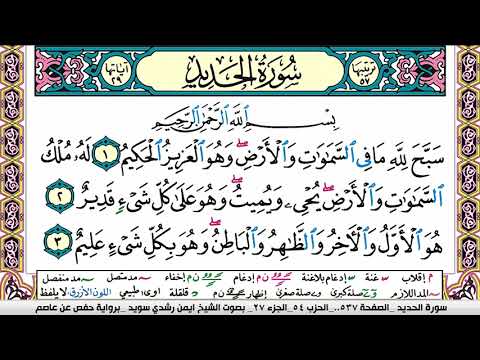 مرتيبها ٥٧
سُورَةُ الحَدِيدِ
آياتها ٢٩
بِسْمِ اللَّهِ الرَّحْمَٰنِ الرَّحِيمِ
سَبَّحَ لِلَّهِ مَا فِي السَّمَٰوَٰتِ وَالْأَرْضِ ۖ وَهُوَ الْعَزِيزُ الْحَكِيمُ ١ لَهُ مُلْكُ
السَّمَٰوَٰتِ وَالْأَرْضِ ۖ يُحْيِۦ وَيُمِيتُ ۖ وَهُوَ عَلَىٰ كُلِّ شَيْءٍ قَدِيرٌ ٢
هُوَ الْأَوَّلُ وَالْآخِرُ وَالظَّٰهِرُ وَالْبَاطِنُ ۖ وَهُوَ بِكُلِّ شَيْءٍ عَلِيمٌ ٣
م إقلاب غنة إدغام بلاغنة ن م إدغام ن م إخفاء مد متصل مد منفصل
المد اللازم صلة كبرى صلة صغرى إظهار ن م قلقلة ا و ى: طبيعي اللون الأزرق: لا يلفظ
سورة الحديد _ الصفحة ٥٣٧.. _ الحزب ٥٤ _ الجزء ٢٧ _ بصوت الشيخ ايمن رشدي سويد _ برواية حفص عن عاصم